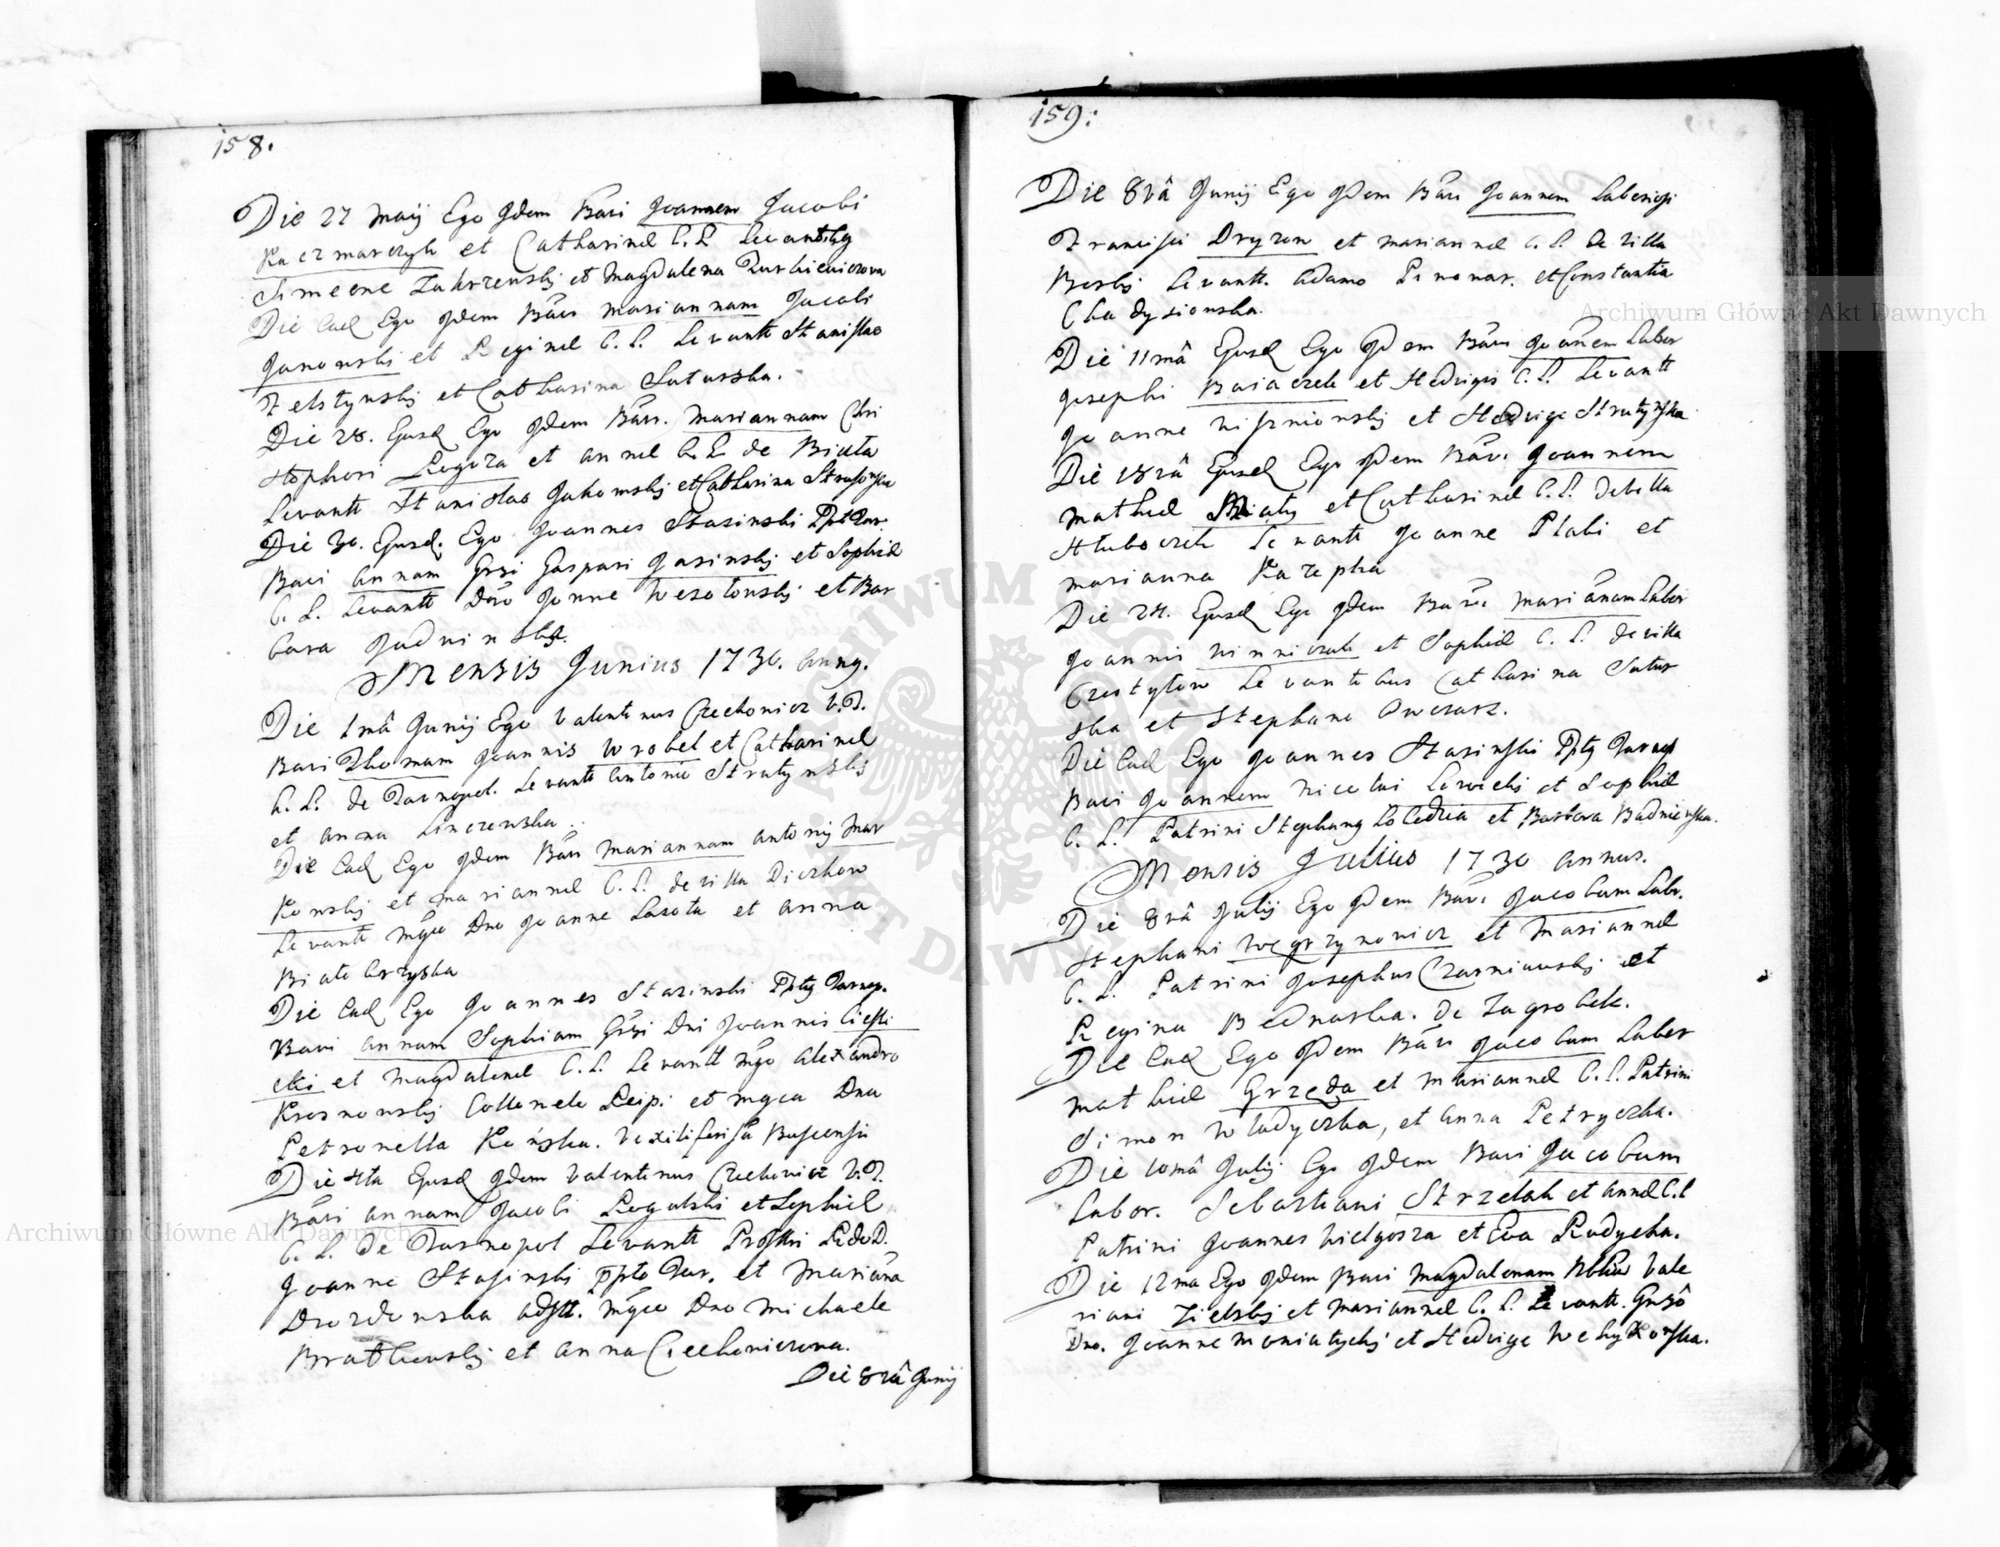 158.
Die 27 Maij Ego qdem Baui Joannem Jacobi
Kaczmarczyk et Catharinae C. L. Levantibq
Simeone Zakrzewskij et Magdalena
Die Ead Ego qdem Baui Mariannam Jacobi
Janowskij et Reginae C. L. Levantt Stanislao
Felstynskij et Catharina Saturska.
Die 28. Ejusd Ego qdem Baui. Mariannam Chri
stophori Rogoza et Annae C. L. de Biała
Levantt Stanislao Jakowskij et Catharina
Die 30. Ejusd. Ego Joannes Stasinski Ppt Tar.
Baui Annam Grsi Gaspari Jasinskij et Sophiae
C. L. Levantt Dno Joanne Wesołowskij et Bar
bara
Mensis Junius 1730. Anng.
Die 1mâ Junij Ego Valentinus Czechowicz V. P.
Baui Thomam Joannis Wrobel et Catharinae
C. L. de Tarnopol. Levantt Antonio Stratynskij
et Anna Linczewska.
Die Ead Ego qdem Baui Mariannam Antonij Mar
Kowskij et Mariannae C. L. de villa Diczkow
Levantt Mgco Dno Joanne Lasota et Anna
Biało brzyska
Die Ead Ego Joannes Stasinski Pptg Tarnop.
Baui Annam Sophiam Grsi Dni Joannis Ciesli
cki et Magdalenae C. L. Levantt Mgo Alexandro
Krosnowskij Collonelo Reip: et Mgca Dna
Petronella Końska. Vexiliferissa Buscensis
Die 4ta Ejusd qdem Valentinus Czechowicz V. P.
Baui Annam Jacobi Rogalski et Sophiae
C. L. de Tarnopol Levantt
Joanne Stasinski ppto Tar. et Mariâna
Drozdowska adstt. Mgco Dno Michaele
Bratkowskij et Anna Czechowiczowa.
Die 8vâ Junij
159:
Die 8vâ Junij Ego qdem Baui Joannem Laboriosi
Francisci Dryzon et Mariannae C. L. de villa
Borkij Levantt. Adamo et Constantia
Die 11mâ Ejusd Ego qdem Baui Joânem Labor
Josephi Baiaczek et Hedvigis C. L. Levantt
Joanne Wisznionskij et Hedvige Stratynska
Die 18vâ Ejusd Ego qdem Baui Joannem
Mathiae Białij et Catharinae C. L. de villa
Hłuboczek Levantt Joanne Płabi et
Marianna
Die 24. Ejusd Ego qdem Baui Mariânam Labor
Joannis Winniczuk et Sophiae C. L. de villa
Czystyłow Levantibus Catharina Satur
ska et Stephano Owczarz.
Die Ead Ego Joannes Stasinski Pptg Tarnop
Baui Joannem Nicolai Lewickij et Sophiae
C. L. Patrini Stephang et Barbara
Mensis Julius 1730 Annus.
Die 8vâ Julij Ego qdem Baui Jacobum Labr.
Stephani Węgrzynowicz et Mariannae
C. L. Patrini Josephus Czarniawskij et
Regina Bednarka. De Zagrobele.
Die Ead Ego qdem Baui Jacobum Labor
Mathiae Grzęda et Mariannae C. L. Patrini
Simon Władyczka, et Anna Petryczka.
Die 10mâ Julij Ego qdem Baui Jacobum
Labor. Sebastiani Strzelak et Annae C. L
Patrini Joannes Wielgosza et Eva Rudycka.
Die 12ma Ego qdem Baui Magdalenam Nbliû Vale
riani Zielskij et Mariannae C. L. Levantt. Grsô
Dno. Joanne Moniatyckij et Hedvige
Archiwum Główne Akt Dawnych
Archiwum Główne Akt Dawnych
ARCHIWUM GŁÓWNE AKT DAWNYCH